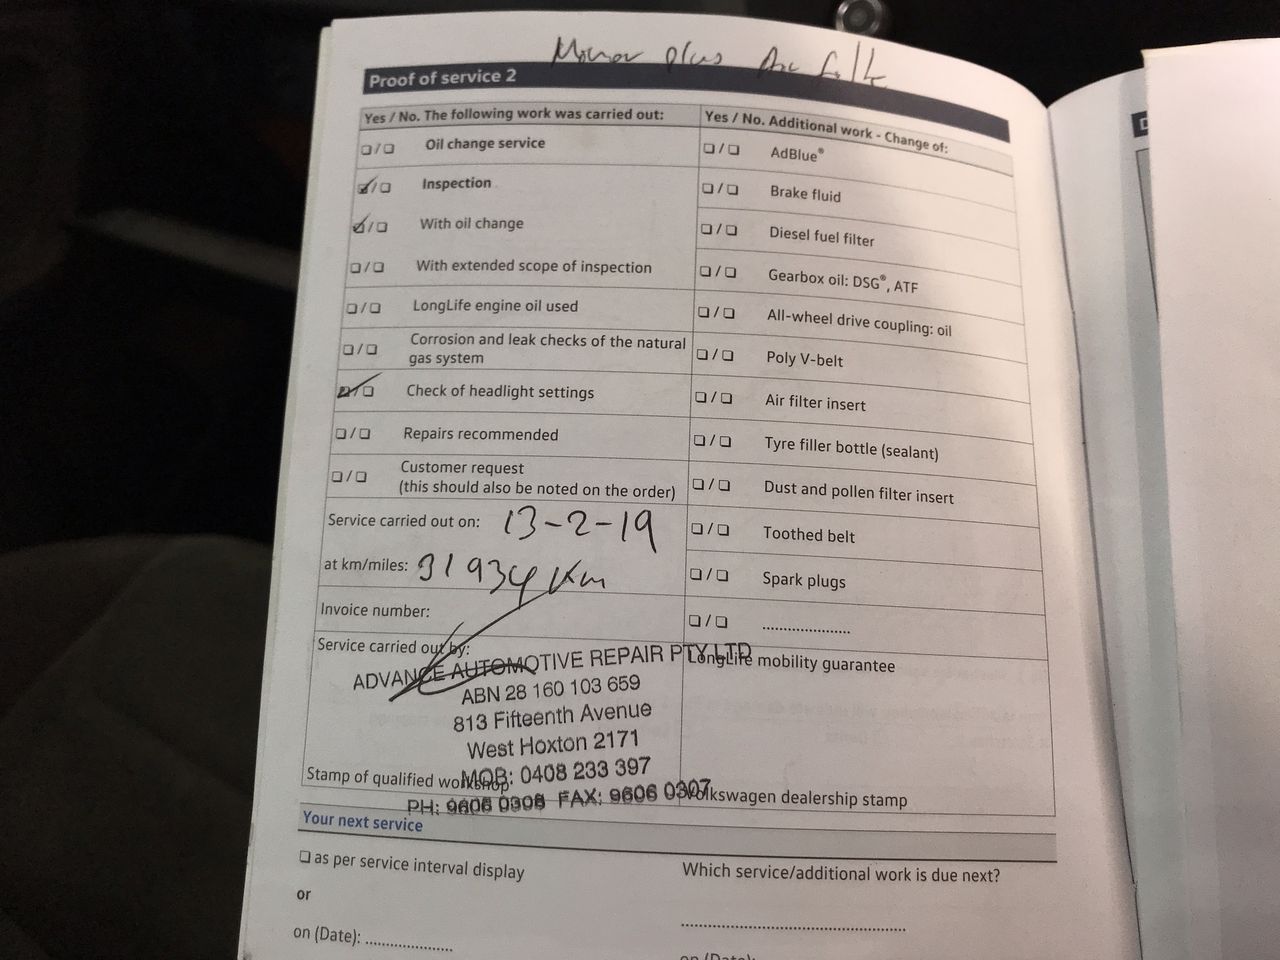 plus
Proof of service 2
Yes / No. The following work was carried out:
❑/❑ Oil change service
☑/❑ Inspection
☑/❑ With oil change
❑/❑ With extended scope of inspection
❑/❑ LongLife engine oil used
❑/❑ Corrosion and leak checks of the natural
gas system
☑/❑ Check of headlight settings
❑/❑ Repairs recommended
❑/❑ Customer request
(this should also be noted on the order)
Service carried out on: 13-2-19
at km/miles: 31934 Km
Invoice number:
Service carried out by:
ADVANCE AUTOMOTIVE REPAIR PTY LTD
ABN 28 160 103 659
813 Fifteenth Avenue
West Hoxton 2171
MOB: 0408 233 397
Stamp of qualified workshop
PH: 9606 0306 FAX: 9606 0307
Yes / No. Additional work - Change of:
❑/❑ AdBlue®
❑/❑ Brake fluid
❑/❑ Diesel fuel filter
❑/❑ Gearbox oil: DSG®, ATF
❑/❑ All-wheel drive coupling: oil
❑/❑ Poly V-belt
❑/❑ Air filter insert
❑/❑ Tyre filler bottle (sealant)
❑/❑ Dust and pollen filter insert
❑/❑ Toothed belt
❑/❑ Spark plugs
❑/❑ ....................
LongLife mobility guarantee
Volkswagen dealership stamp
Your next service
❑ as per service interval display
or
on (Date): ....................
Which service/additional work is due next?
on (Date):